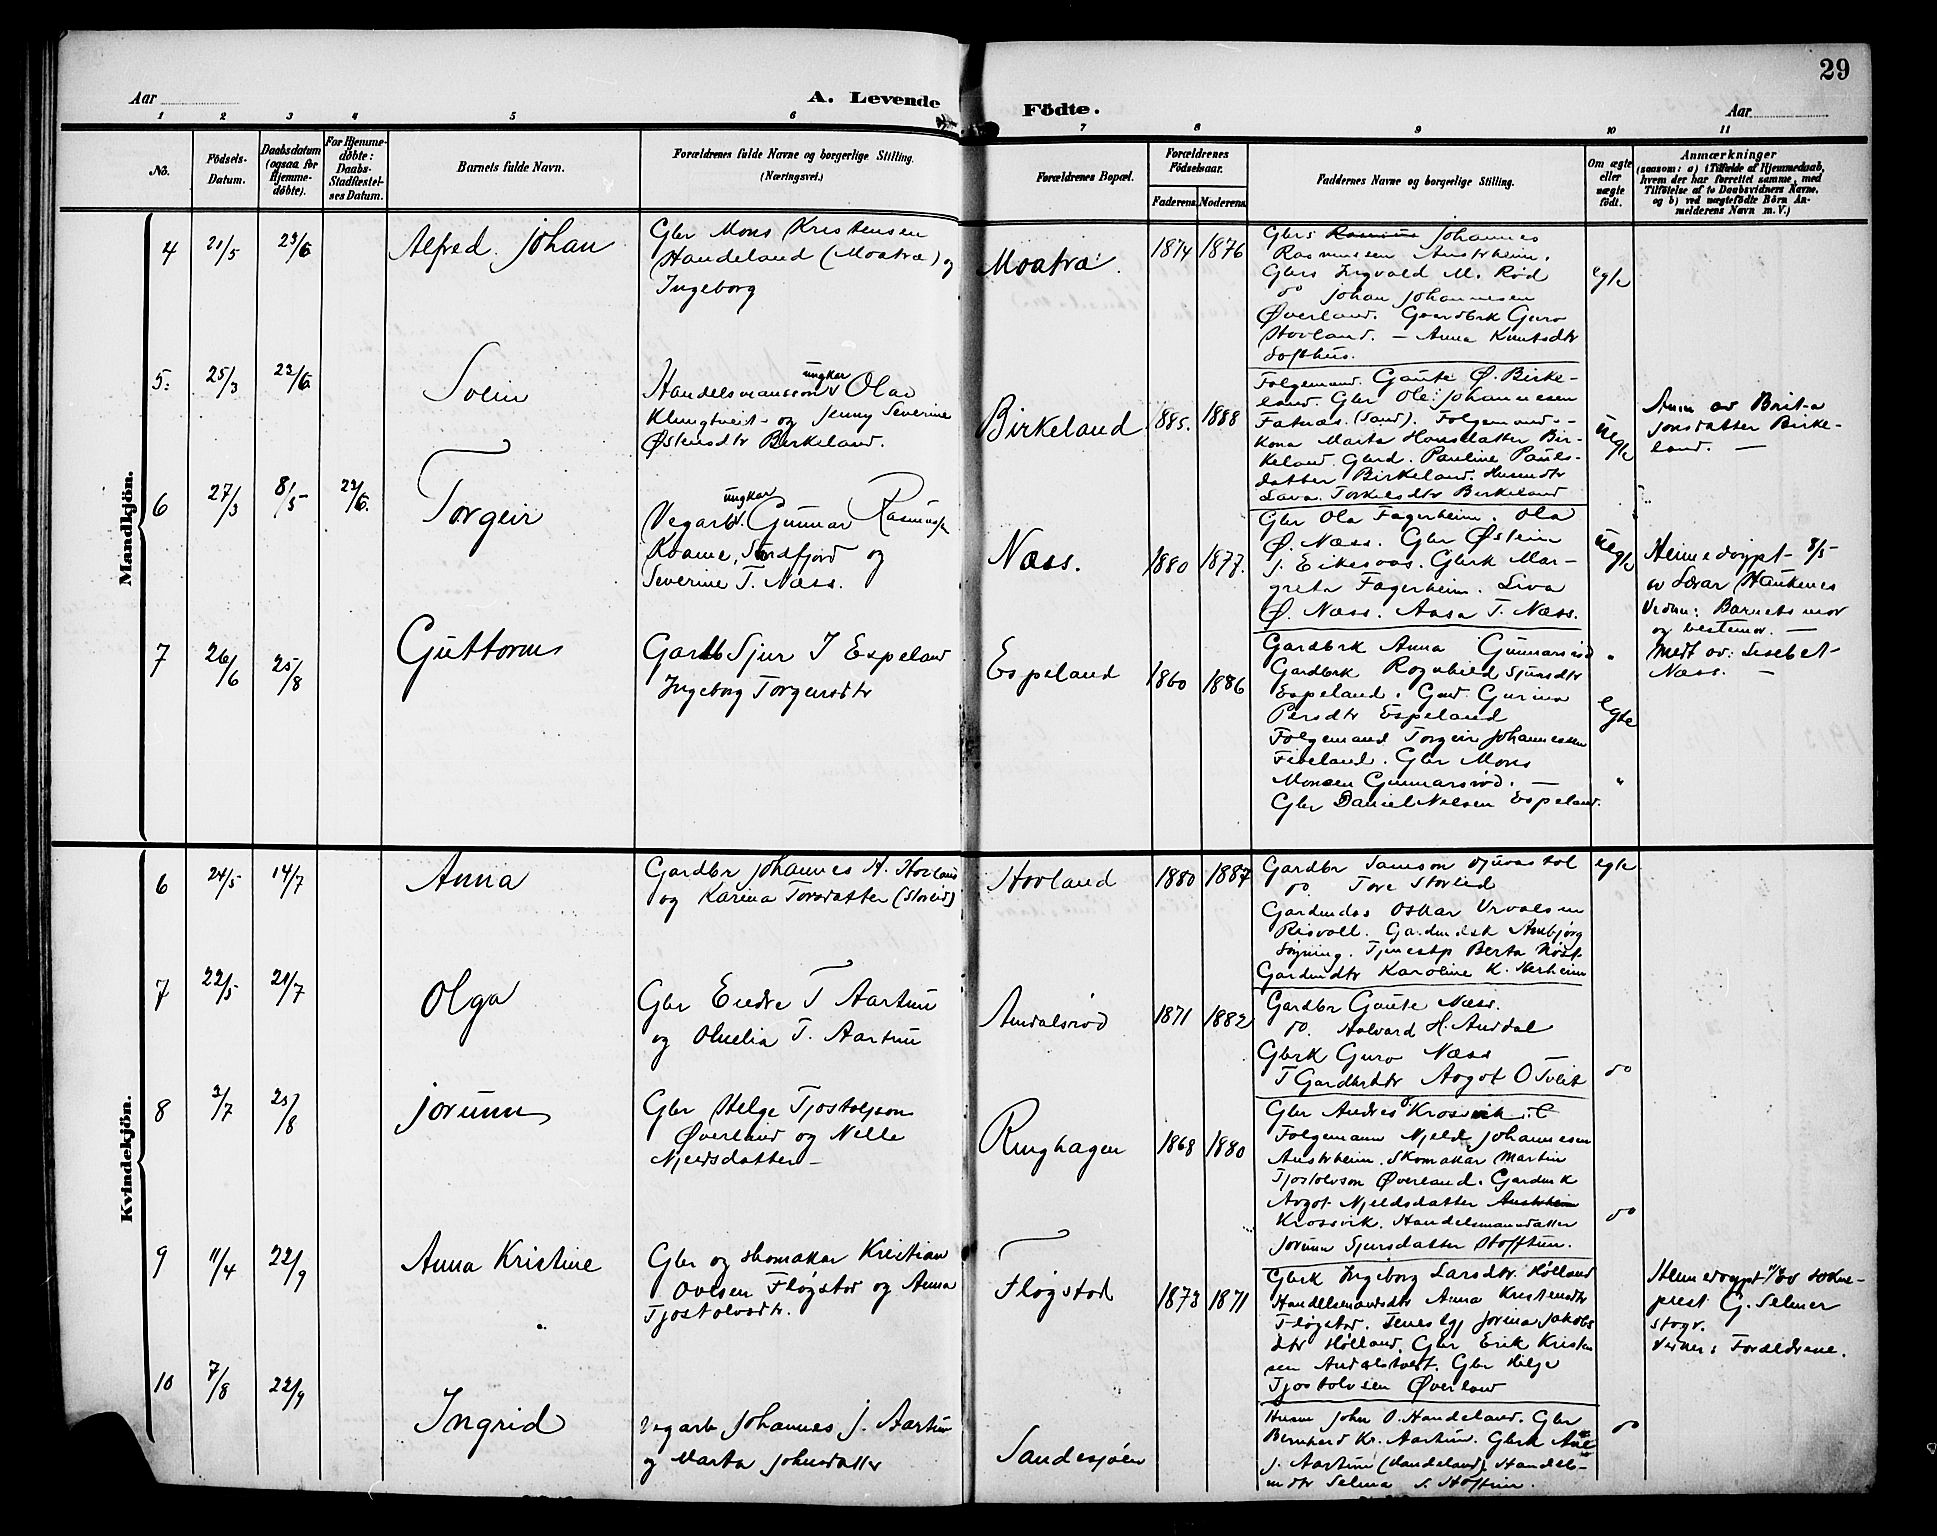 29
Aar
A. Levende Födte.
Aar
1 2 3 4 5 6 7 8 9 10 11
No.
Födsels-Datum.
Daabsdatum (ogsaa for Hjemmedøbte).
For Hjemmedøbte: Daabs-Stadfæstelses Datum.
Barnets fulde Navn.
Forældrenes fulde Navne og borgerlige Stilling. (Næringsvei.)
Forældrenes Bopæl.
Forældrenes Födselsaar.
Faderens. Moderens.
Faddernes Navne og borgerlige Stilling.
Om ægte eller uægte födt.
Anmærkninger
(saasom: a) i Tilfælde af Hjemmedaab,
hvem der har forrettet samme, med
Tilföielse af to Daabsvidners Navne,
og b) ved uægtefödte Börn Anmelderens Navn m. V.)
Mandkjön.
4 21/5 23/6 Alfred Johan
Gbr Mons Kristensen
Handeland (Moatræ) og
Ingeborg
Moatræ 1874 1876
Gbrs Johannes
Rasmussen Austrheim.
Gbrs Ingvald M. Rød
do Johan Johannesen
Øverland. Gaardbrk Guro
Hovland. — Anna Knutsdtr
Softhus.
egte
5. 25/3 23/6 Svein
Handelsmannssøn ungkar Olav
Klungtveit og Jenny Severine
Østensdtr Birkeland.
Birkeland 1885. 1888
Folgemand. Gaute Ø. Birke-
land. Gbr Ole Johannesen
Fatnæs. (Sand). Folgemands-
kona Marta Hansdatter Bir-
keland. Gbrd. Pauline Pauls-
datter Birkeland. Husmdtr
Lava Torkelsdtr Birkeland
uegte
Anm av Brita
Jonsdatter Birke-
land. —
6 27/3 8/5 23/6. Torgeir
Vegarb. ungkar Gunnar Rasmuss
Kvame, Sandfjord og
Severine T. Næss.
Næss. 1880 1877.
Gbr Ola Fagerheim. Ola
Ø. Næss. Gbr Østein
J. Eikesaas. Gbrk Mar-
greta Fagerheim. Liva
Ø. Næss. Aasa T. Næss.
uegte
Heimedøypt 8/5
av Lærar Haukenes
Vedne: Barnets mor
og bestemor. —
Meldt av: Lisebet
Næss. —
7 26/6 25/8 Guttorm
Gardb Sjur I Espeland
Ingeborg Torgersdtr
Espeland 1860 1886
Gardbrk Anna Gunnarsrød
Gardbrk Ragnhild Sjursdtr
Espeland. Gard. Gurina
Persdtr Espeland
Folgemand Torgeir Johannessen
Fiveland. Gbr Mons
Monsen Gunnarsrød. —
Gbr Daniel Nelsen Espeland.
egte
Kvindekjön.
6 24/5 14/7 Anna
Gardbr Johannes A. Hovland
og Karina Torsdatter (Storlid)
Hovland 1880 1887
Gardbr Samson Djuvastøl
do Tore Storlid
Gardmdas Oskar
Risvoll. Gardmdsk Ambjørg
Søyning. Tjenestp Berta Nøst
Gardmdtr Karoline K. Herheim
egte
7 22/5 21/7 Olga
Gbr Endre T Aartun
og Omelia T. Aartun
Amdalsrød 1871 1882
Gardbr Gaute Næss.
do. Halvard H. Amdal
Gbrk Guro Næss
T Gardbrdtr Aagot O Tveit
do
8 2/7 25/8 Jorunn
Gbr Helge Tjostolfson
Øverland og Nelle
Njeldsdatter —
Ringhagen 1868 1880
Gbr Andres Krossvik.
Folgemann Njeld Johannesen
Austrheim. Skomakar Martin
Tjostolvson Øverland. Gardmk
Aagot Njeldsdatter Austrheim
Krossvik. Handelsmannsdatter
Jorunn Sjursdatter Hofftun.
do
9 11/4 22/9 Anna Kristine
Gbr og skomakar Kristian
Ovesen Fløgstad og Anna
Tjostolvsdtr.
Fløgstad 1873 1871
Gbrk Ingeborg Larsdtr Hølland
Handelsmandsdtr Anna Kristensdtr
Fløgstad. Jorina Jakobs
dtr Hølland. Gbr Erik Kristen
sen Amdalstveit. Gbr Helge
Tjostolvsen Øverland
Heimedøypt 11/4 av sokne-
prest G. Selmer
Stogr.
Vedner: Forældrene.
10 7/8 22/9 Ingrid
Vegarb Johannes J. Aartun
og Marta Johnsdatter
Sandesjøen
Husm John O. Handeland. Gbr
Bernhard Kr. Aartun. Gbrk Ane
J. Aartun (Handeland). Handels-
mdtr Selma S. Hofftun.
do